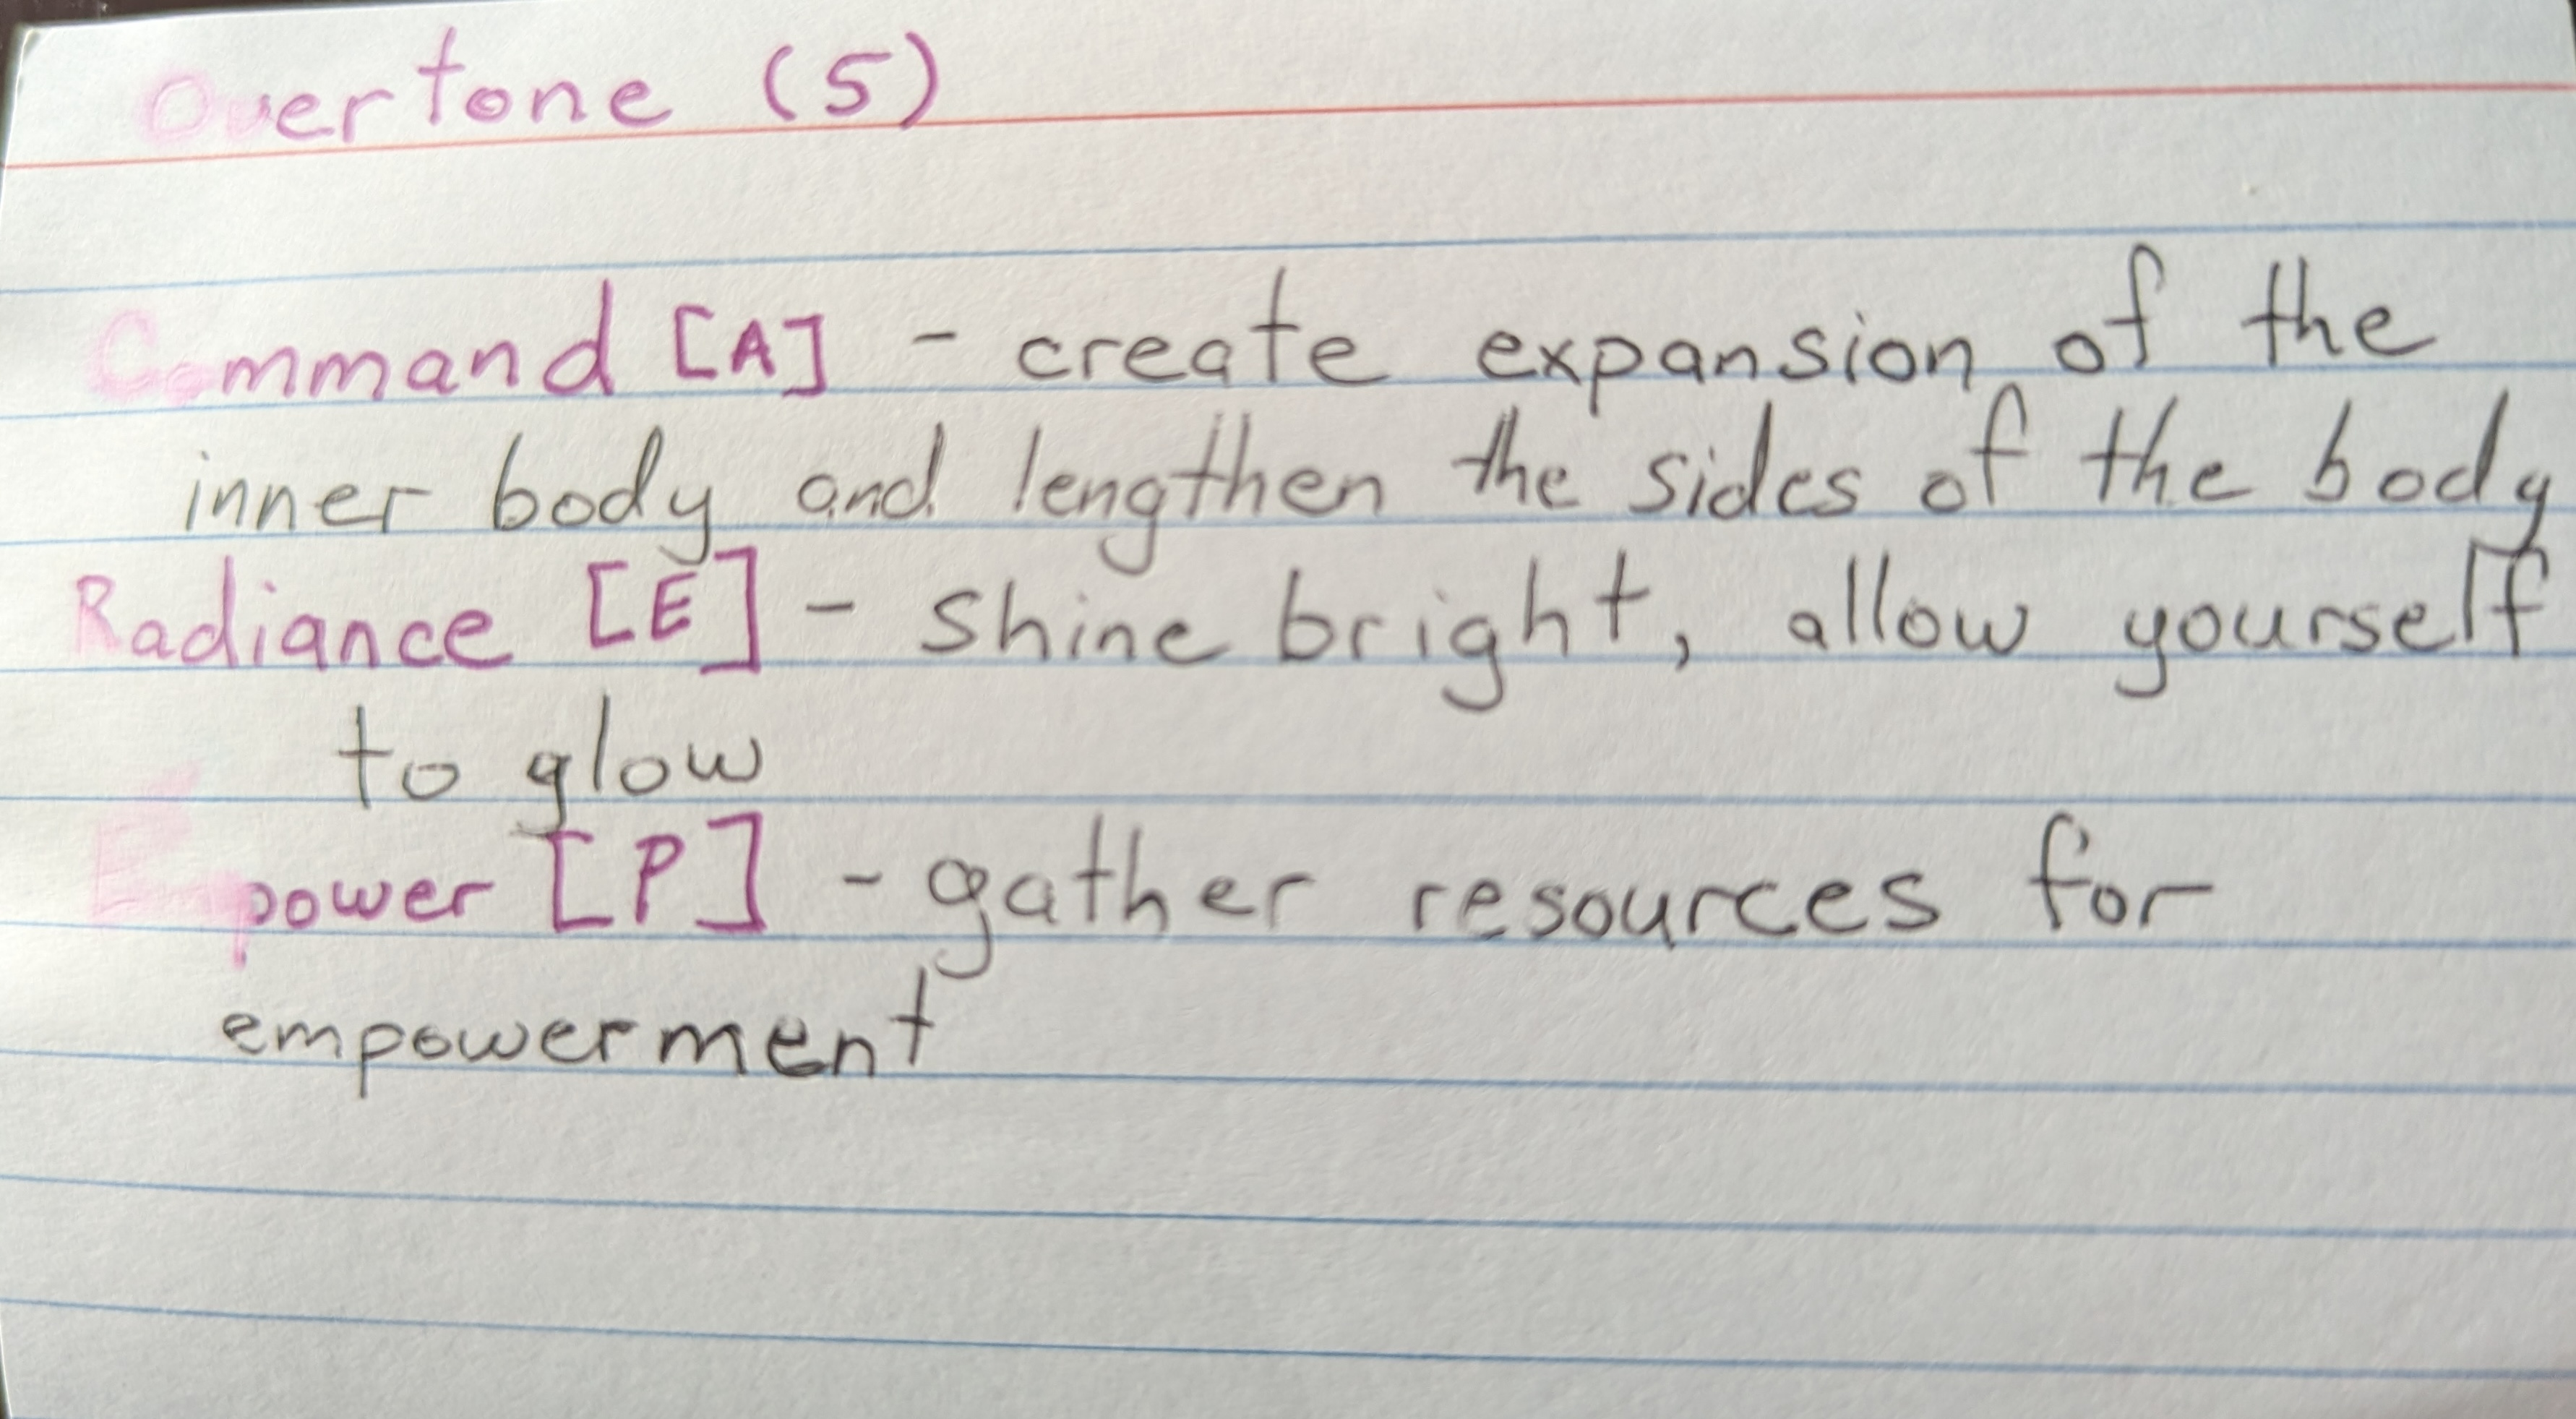 Overtone (5)
Command [A] - create expansion of the
inner body and lengthen the sides of the body
Radiance [E] - shine bright, allow yourself
to glow
Empower [P] - gather resources for
empowerment